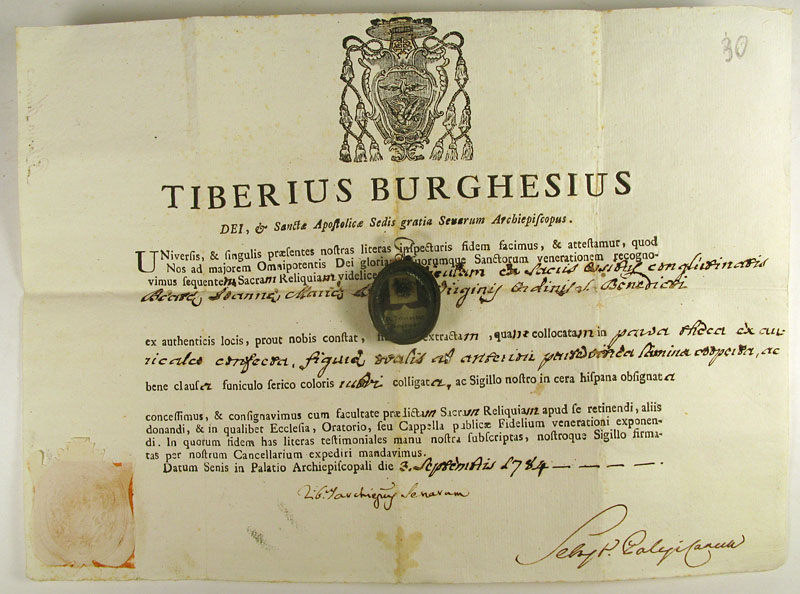 30
TIBERIUS BURGHESIUS
DEI, & Sanctæ Apostolicæ Sedis gratia Senarum Archiepiscopus.
UNiversis, & singulis præsentes nostras literas inspecturis fidem facimus, & attestamur, quod
Nos ad majorem Omnipotentis Dei gloria suorumque Sanctorum venerationem recogno-
vimus sequentem Sacram Reliquiam videlice ex sacris ossibus conglutinatis
Beatæ Joannæ Mariæ Virginis Ordinis S. Benedicti
ex authenticis locis, prout nobis constat, extractam, quam collocatam in parva theca ex au-
ricalco confecta, figuræ ovalis ab anteriori parte lamina cooperta, ac
bene clausa funiculo serico coloris rubri colligata, ac Sigillo nostro in cera hispana obsignata
concessimus, & consignavimus cum facultate prædictam Sacram Reliquiam apud se retinendi, aliis
donandi, & in qualibet Ecclesia, Oratorio, seu Cappella publicæ Fidelium venerationi exponen-
di. In quorum fidem has literas testimoniales manu nostra subscriptas, nostroque Sigillo firma-
tas per nostrum Cancellarium expediri mandavimus.
Datum Senis in Palatio Archiepiscopali die 3. Septembris 1784
Tib. Archiepus Senarum